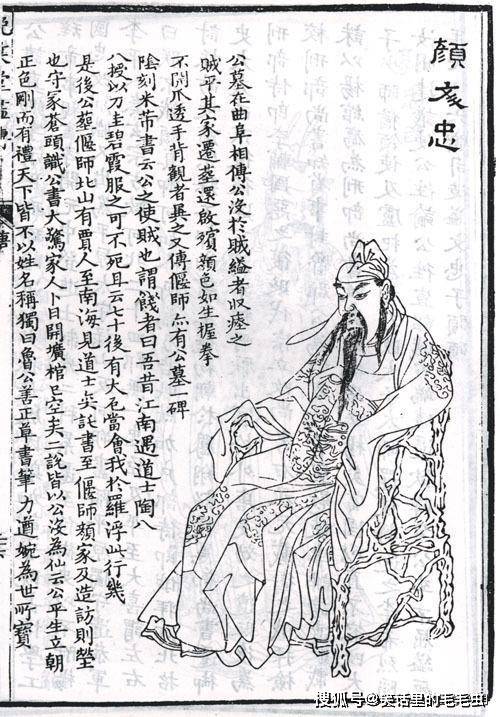 顏文忠
公墓在曲阜相傳公沒於賊縊者収瘞之
賊平其家遷塟還啟殯顏色如生握拳
不開爪透手背觀者異之又傳偃師亦有公墓一碑
陰刻米芾書云公之使賊也謂餞者曰吾昔江南遇道士陶八
八授以刀圭碧霞服之可不死且云七十後有大厄當會我於羅浮此行幾
是後公塟偃師北山有賈人至南海見道士奕託書至偃師顏家及造訪則塋
也守冢蒼頭識公書大驚家人卜日開壙棺已空矣二說皆以公沒為仙云公平生立朝
正色剛而有禮天下皆不以姓名稱獨曰魯公善正草書筆力遒婉為世所寶
搜狐号@笑话里的毛毛虫